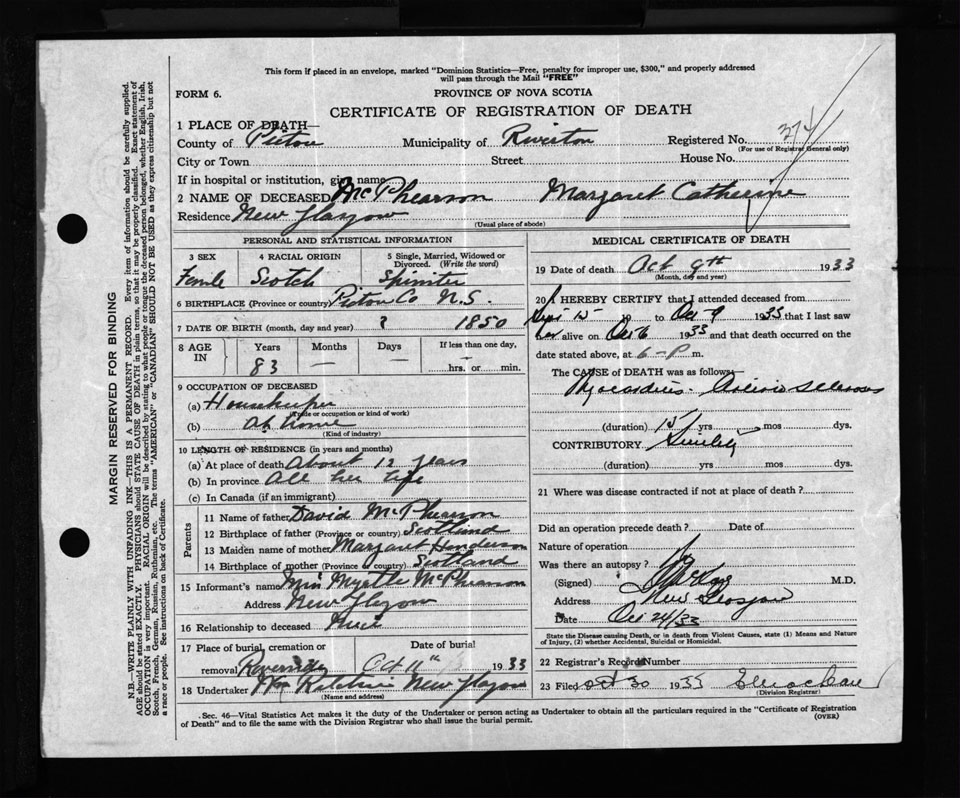 This form if placed in an envelope, marked "Dominion Statistics—Free, penalty for improper use, $300," and properly addressed
will pass through the Mail "FREE"
FORM 6.
PROVINCE OF NOVA SCOTIA
CERTIFICATE OF REGISTRATION OF DEATH
374
1 PLACE OF DEATH—
County of Pictou Municipality of Riverton Registered No.
(For use of Registrar General only)
City or Town Street House No.
If in hospital or institution, give name
2 NAME OF DECEASED McPhearson Margaret Catherine
Residence New Glasgow
(Usual place of abode)
PERSONAL AND STATISTICAL INFORMATION
3 SEX 4 RACIAL ORIGIN 5 Single, Married, Widowed or Divorced. (Write the word)
Female Scotch Spinster
6 BIRTHPLACE (Province or country) Pictou Co N.S.
7 DATE OF BIRTH (month, day and year) ? 1850
8 AGE IN Years Months Days If less than one day,
83 — — hrs. or min.
9 OCCUPATION OF DECEASED
(a) Housekeeper
(Trade or occupation or kind of work)
(b) At home
(Kind of industry)
10 LENGTH OF RESIDENCE (in years and months)
(a) At place of death About 12 years
(b) In province All her life
(c) In Canada (if an immigrant)
Parents
11 Name of father David McPhearson
12 Birthplace of father (Province or country) Scotland
13 Maiden name of mother Margaret Henderson
14 Birthplace of mother (Province or country) Scotland
15 Informant's name Miss Myrtle McPhearson
Address New Glasgow
16 Relationship to deceased Niece
17 Place of burial, cremation or Date of burial
removal Riverside Oct 11th 1933
18 Undertaker New Glasgow
(Name and address)
MEDICAL CERTIFICATE OF DEATH
19 Date of death Oct 9th 1933
(Month, day and year)
20 I HEREBY CERTIFY that I attended deceased from
Sept 15 19 to Oct 9 1933 that I last saw
her alive on Oct 6 1933 and that death occurred on the
date stated above, at 6-P m.
The CAUSE of DEATH was as follows:
Myocarditis. Arteriosclerosis
(duration) 15 yrs mos dys.
CONTRIBUTORY Senility
(duration) yrs mos dys.
21 Where was disease contracted if not at place of death?
Did an operation precede death? Date of
Nature of operation
Was there an autopsy?
(Signed) M.D.
Address New Glasgow
Date Oct 24/33
State the Disease causing Death, or in death from Violent Causes, state (1) Means and Nature
of Injury, (2) whether Accidental, Suicidal or Homicidal.
22 Registrar's Record Number
23 Filed Oct 30 1933
(Division Registrar)
Sec. 46—Vital Statistics Act makes it the duty of the Undertaker or person acting as Undertaker to obtain all the particulars required in the "Certificate of Registration
of Death" and to file the same with the Division Registrar who shall issue the burial permit.
(OVER)
MARGIN RESERVED FOR BINDING
N.B.—WRITE PLAINLY WITH UNFADING INK—THIS IS A PERMANENT RECORD. Every item of information should be carefully supplied.
AGE should be stated EXACTLY. PHYSICIANS should STATE CAUSE OF DEATH in plain terms, so that it may be properly classified. Exact statement of
OCCUPATION is very important. RACIAL ORIGIN will be described by stating to what people or tongue the deceased person belonged, whether English, Irish,
Scotch, French, German, Russian, Ruthenian, etc. The terms "AMERICAN" or "CANADIAN" SHOULD NOT BE USED as they express citizenship but not
a race or people. See instructions on back of Certificate.